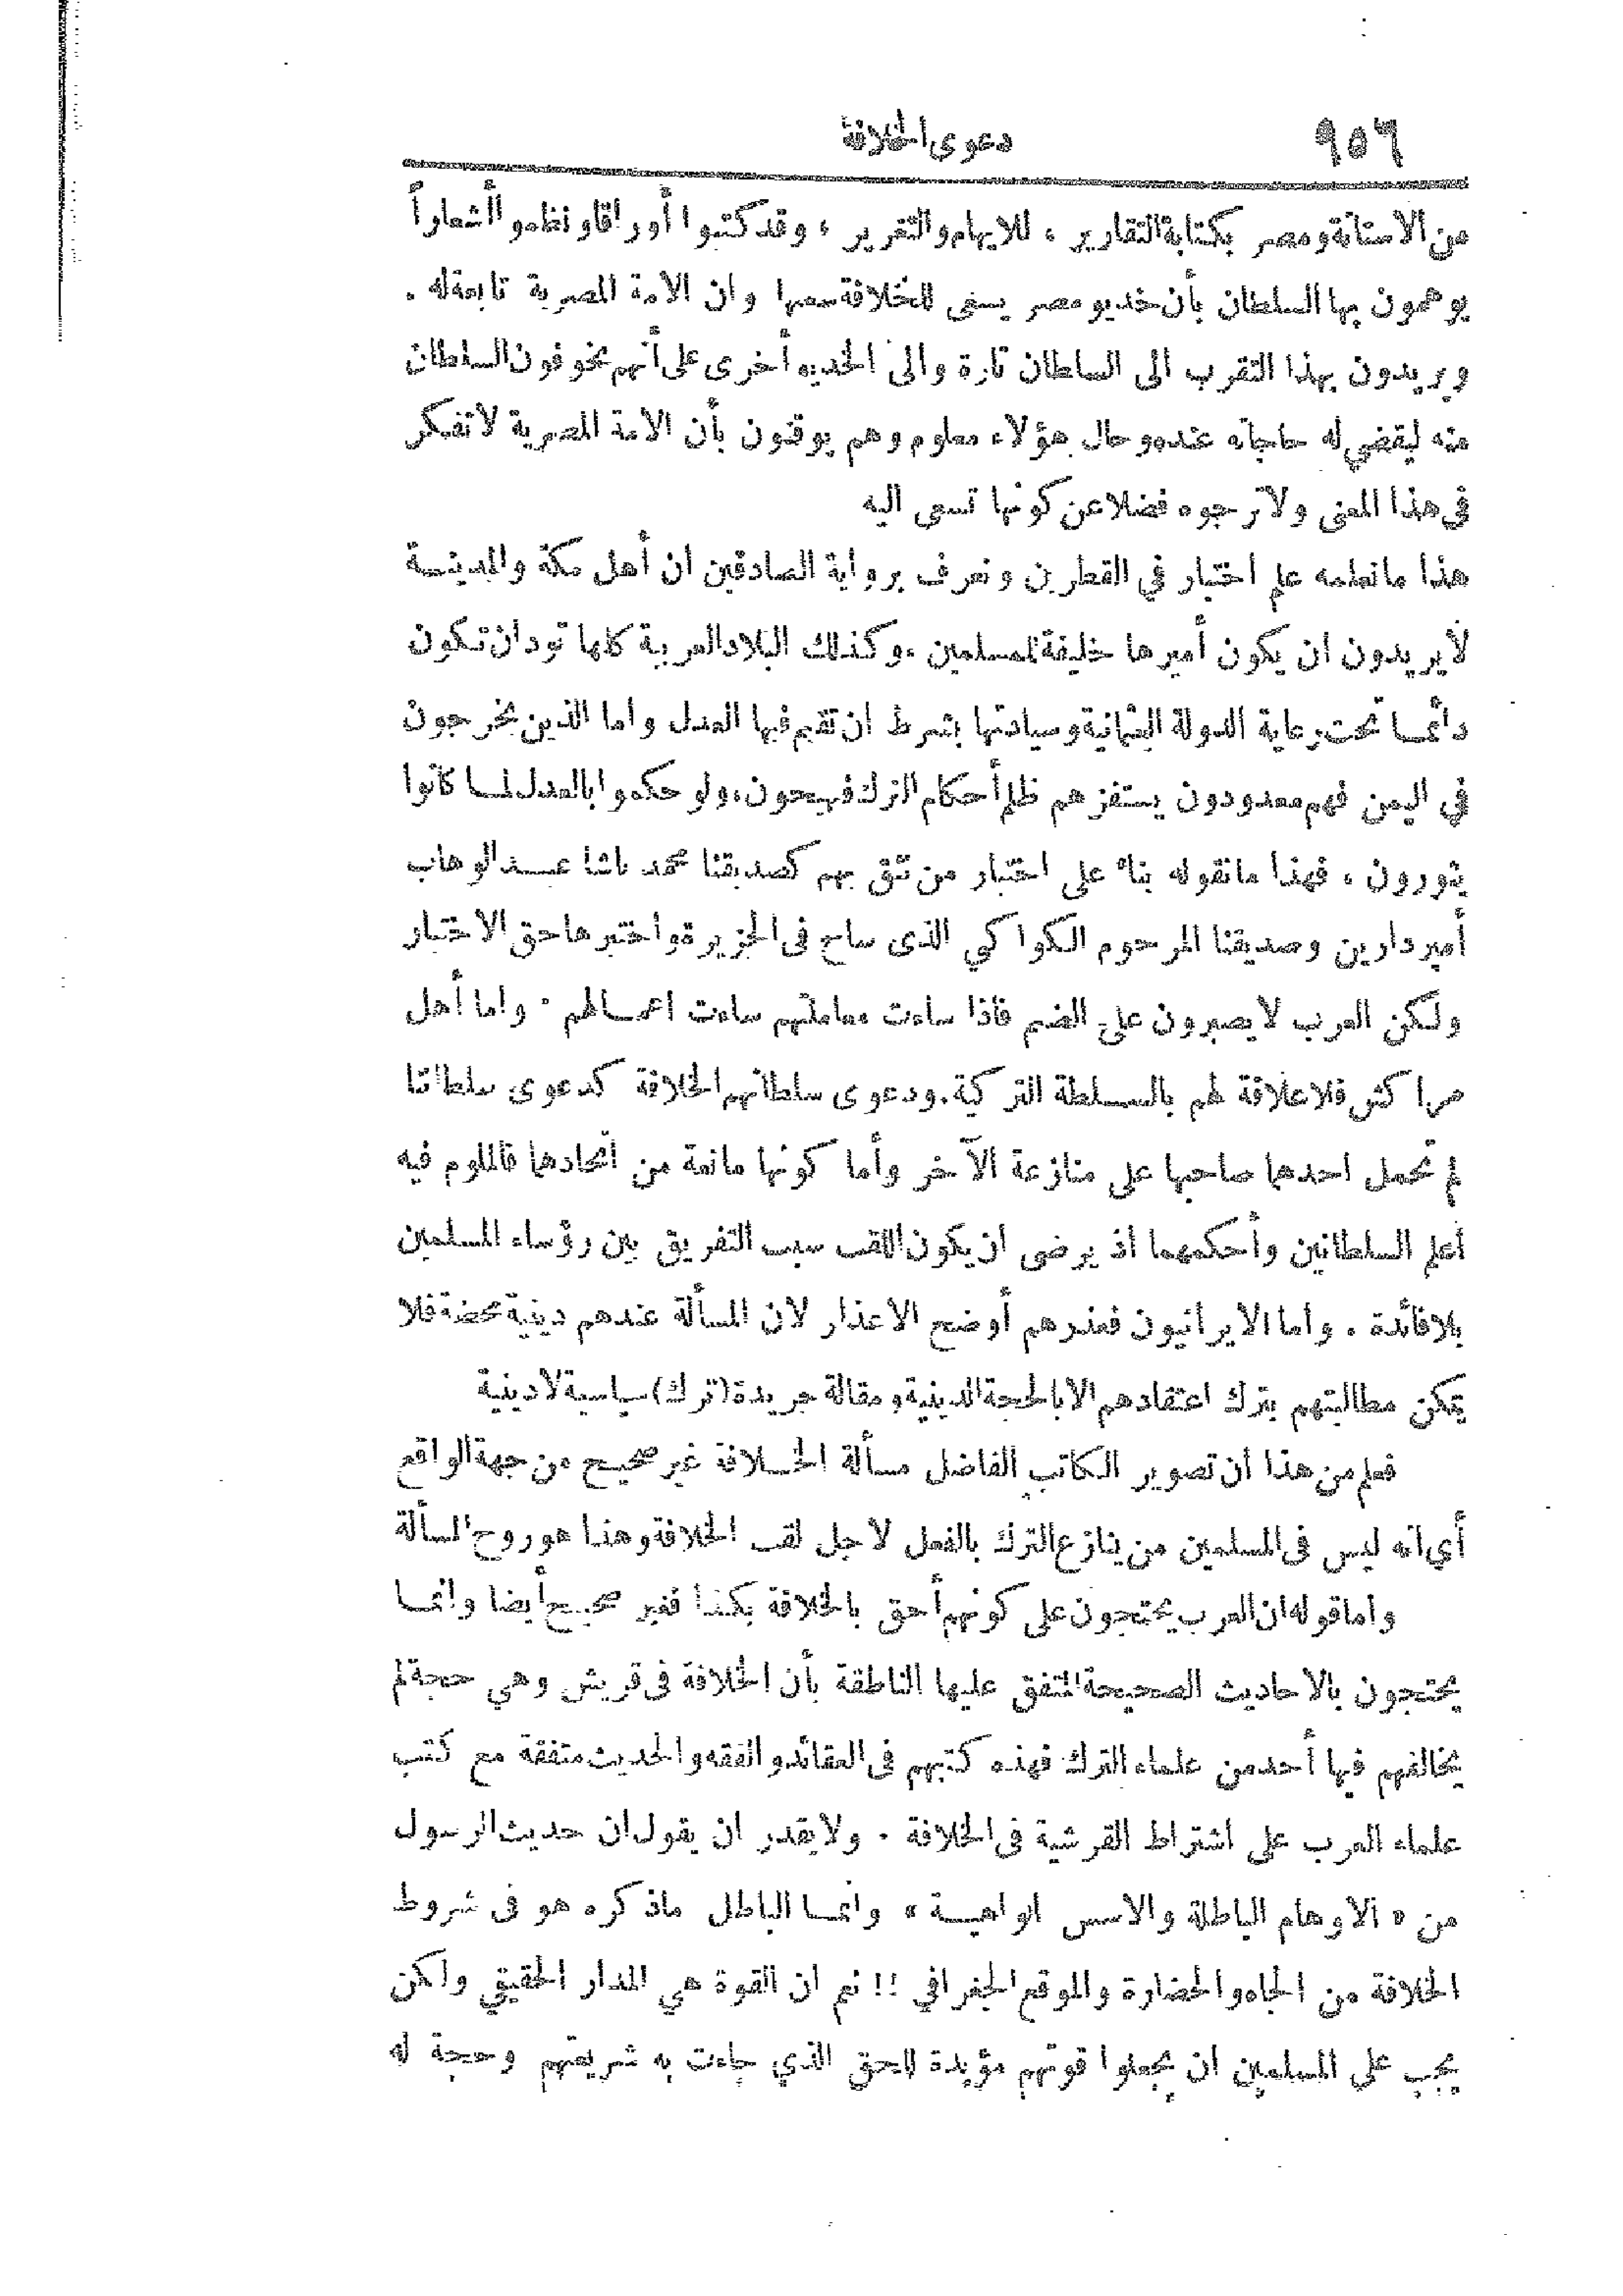 ٩٥٦ دعوى الخلافة
من الاستانة ومصر بكتابة التقارير ، للايهام والتغرير ، وقد كتبوا أوراقا ونظموا أشعاراً
يوهمون بها السلطان بأن خديو مصر يسعى للخلافة سعيها وان الامة المصرية تابعة له .
ويريدون بهذا التقرب الى السلطان تارة والى الخديو أخرى على أنهم يخوفون السلطان
منه ليقضي له حاجاته عنده وحال هؤلاء معلوم وهم يوقنون بأن الامة المصرية لا تفكر
في هذا المعنى ولا ترجوه فضلا عن كونها تسعى اليه
هذا ما نعلمه علم اختبار في القطرين ونعرف برواية الصادقين ان أهل مكة والمدينة
لا يريدون ان يكون أميرها خليفة للمسلمين . وكذلك البلاد العربية كلها تود ان تكون
دائما تحت رعاية الدولة العثمانية وسيادتها بشرط ان تقيم فيها العدل واما الذين يخرجون
في اليمن فهم معدودون يستفزهم ظلم أحكام الترك فيهيجون ، ولو حكموا بالعدل لما كانوا
يثورون ، فهذا ما نقوله بناء على اختبار من نثق بهم كصديقنا محمد باشا عبد الوهاب
أمير دارين وصديقنا المرحوم الكواكبي الذى ساح فى الجزيرة واختبرها حق الاختبار
ولكن العرب لا يصبرون على الضيم فاذا ساءت معاملتهم ساءت اعمالهم . واما أهل
مراكش فلا علاقة لهم بالسلطة التركية . ودعوى سلطانهم الخلافة كدعوى سلطاننا
لم تحمل احدهما صاحبها على منازعة الآخر وأما كونها مانعة من اتحادهما فالملوم فيه
أعلم السلطانين وأحكمهما اذ يرضى ان يكون اللقب سبب التفريق بين رؤساء المسلمين
بلا فائدة . واما الايرانيون فعذرهم أوضح الاعذار لان المسألة عندهم دينية محضة فلا
يمكن مطالبتهم بترك اعتقادهم الا بالحجة الدينية ومقالة جريدة (ترك) سياسية لا دينية
فعلم من هذا ان تصوير الكاتب الفاضل مسألة الخلافة غير صحيح من جهة الواقع
أي انه ليس فى المسلمين من ينازع الترك بالفعل لاجل لقب الخلافة وهذا هو روح المسألة
واما قوله ان العرب يحتجون على كونهم أحق بالخلافة بكذا فغير صحيح أيضا وانما
يحتجون بالاحاديث الصحيحة المتفق عليها الناطقة بأن الخلافة فى قريش وهي حجة لم
يخالفهم فيها أحد من علماء الترك فهذه كتبهم فى العقائد والفقه والحديث متفقة مع كتب
علماء العرب على اشتراط القرشية فى الخلافة . ولا يقدر ان يقول ان حديث الرسول
من « الاوهام الباطلة والاسس الواهية » وانما الباطل ماذكره هو فى شروط
الخلافة من الجاه والحضارة والموقع الجغرافي !! نعم ان القوة هي المدار الحقيقي ولكن
يجب على المسلمين ان يجعلوا قوتهم مؤيدة للحق الذي جاءت به شريعتهم وحجة له